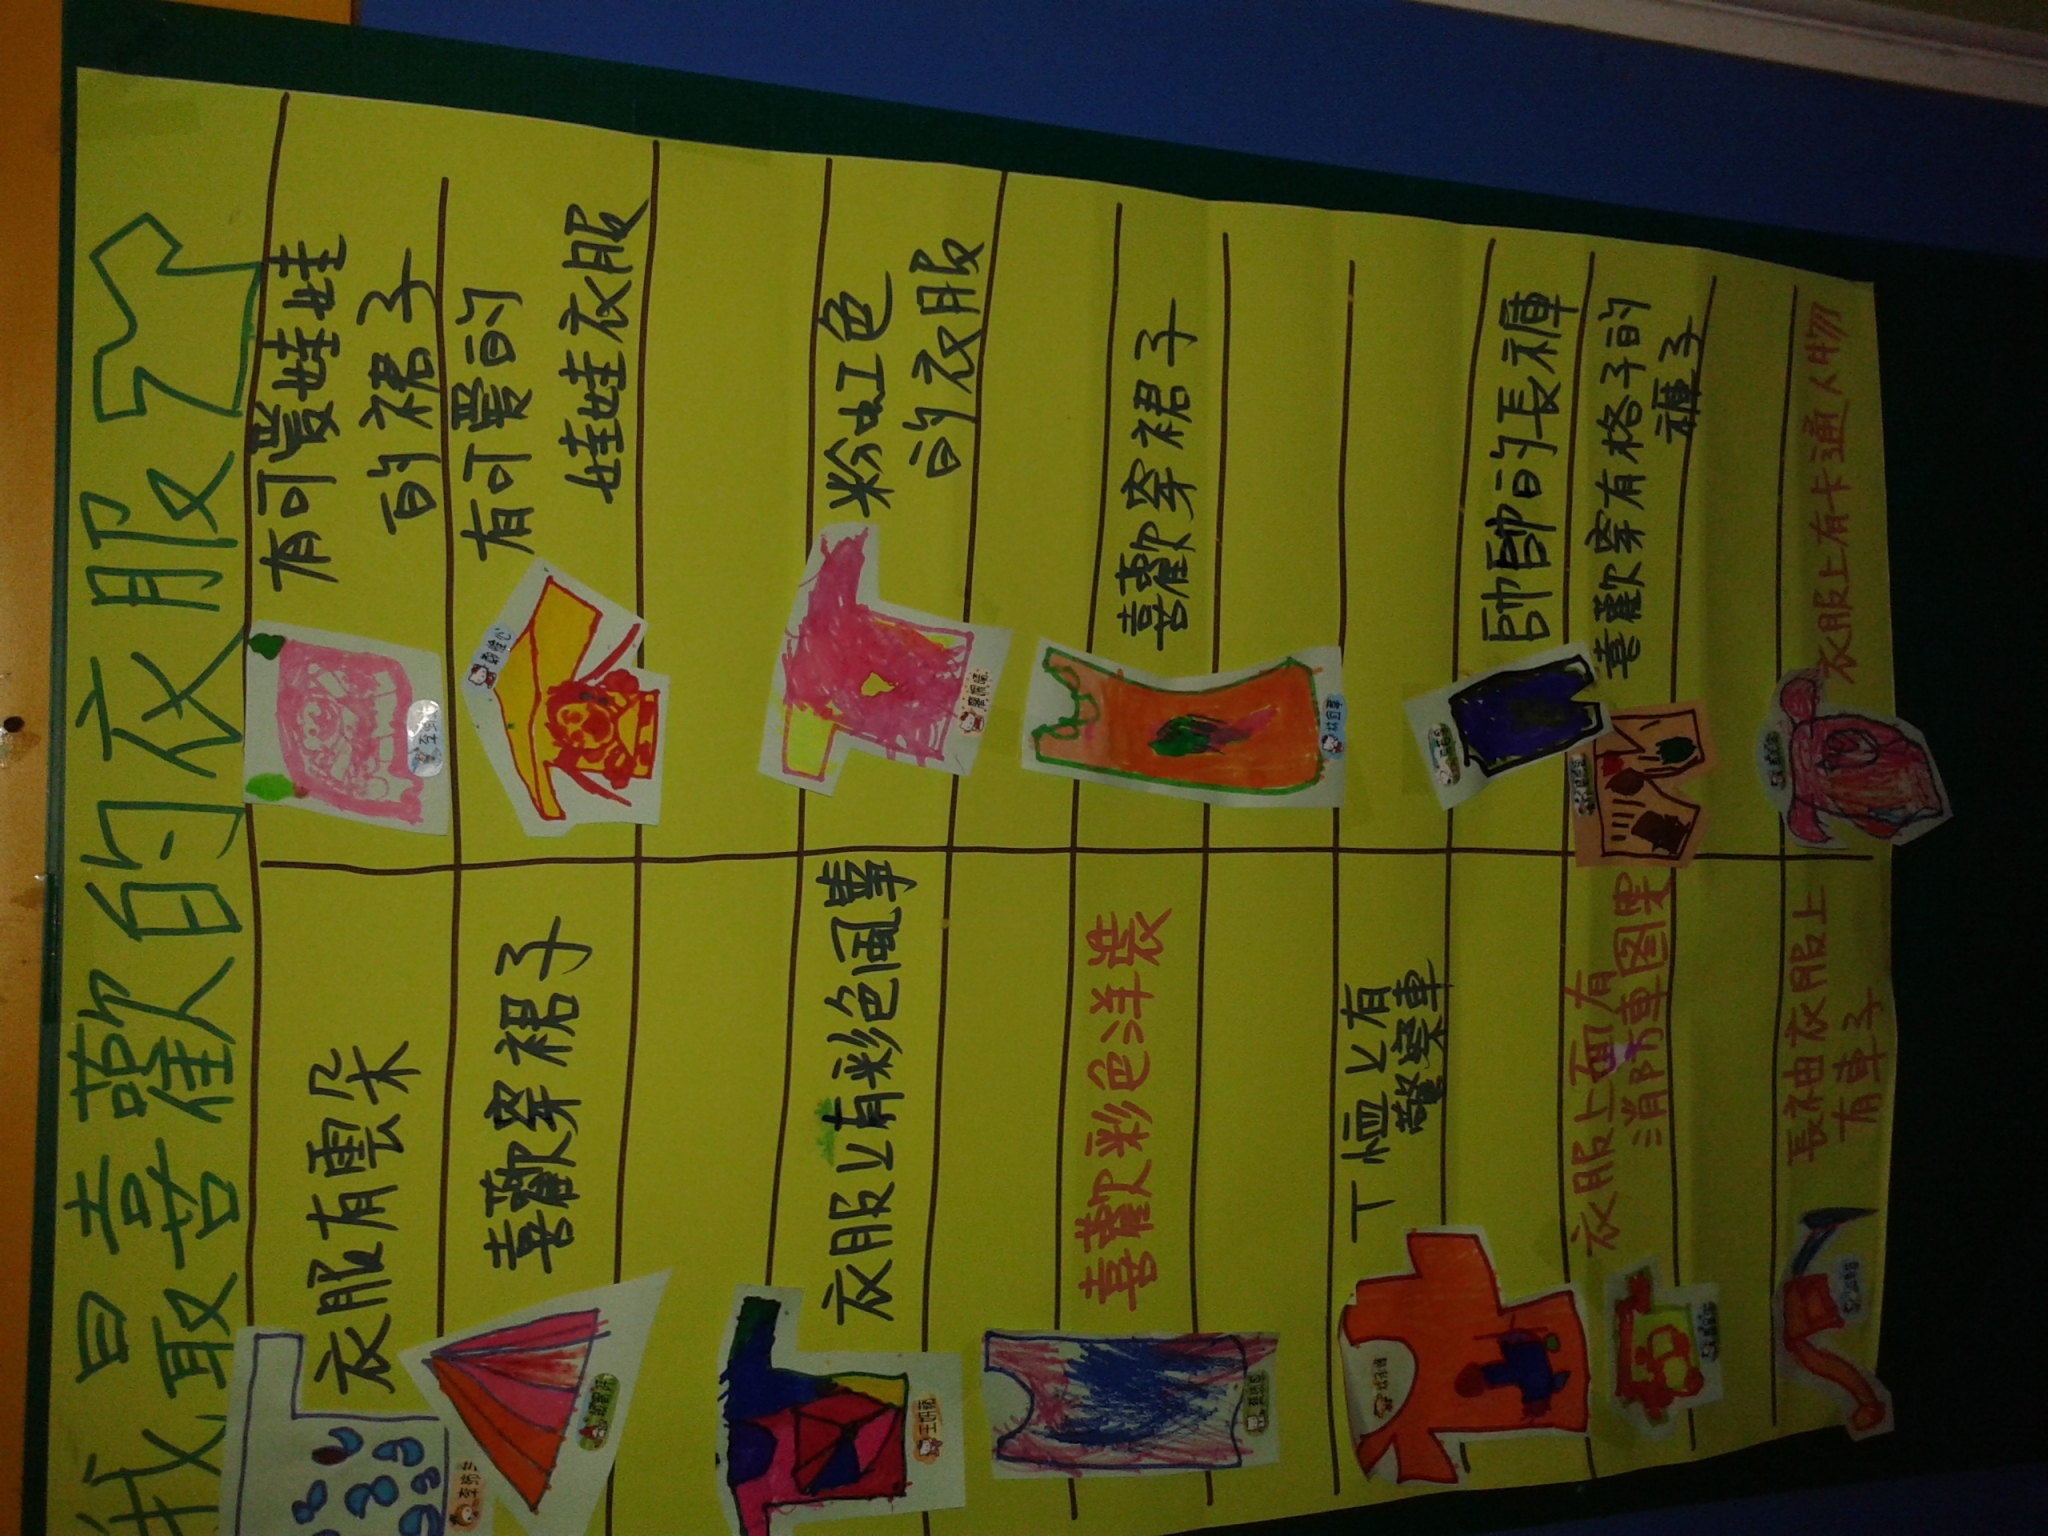 我最喜歡的衣服
衣服有雲朵
有可愛娃娃
的裙子
喜歡穿裙子
有可愛的
娃娃衣服
衣服上有彩色風箏
粉紅色
的衣服
喜歡彩色洋裝
喜歡穿裙子
T恤上有
警察車
帥帥的長褲
衣服上面有
消防車图案
喜歡穿有格子的
褲子
長袖衣服上
有車子
衣服上有卡通人物